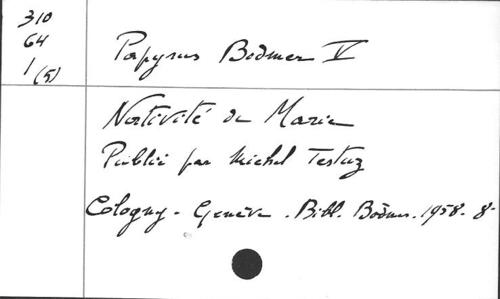 310
64
1 (5)
Papyrus Bodmer V
Nativité de Marie
Publié par Michel Testuz
Cologny - Genève . Bibl. Bodmer . 1958. 8°